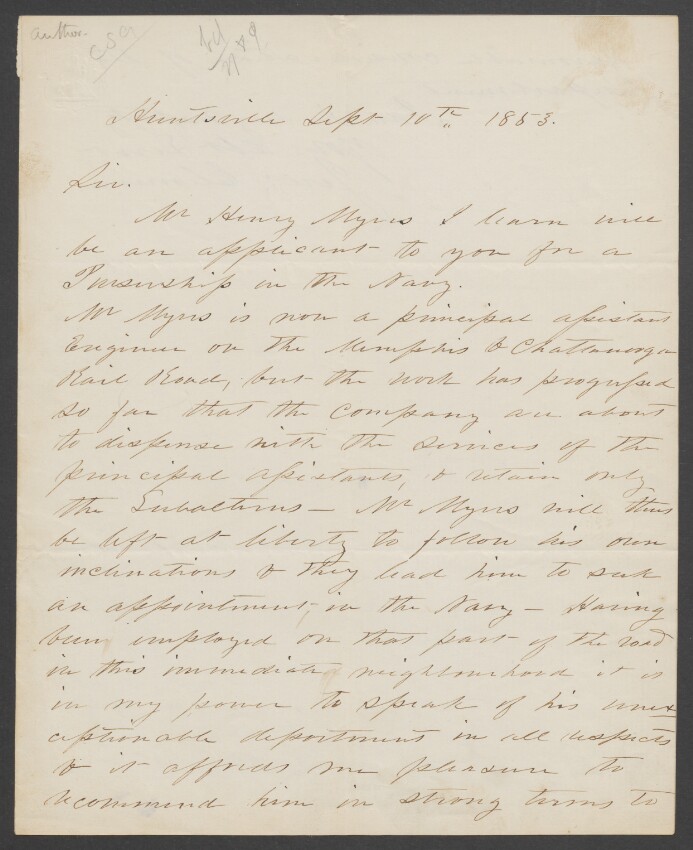 author.
CSA
Huntsville Sept 10th 1853.
Sir.
Mr Henry Myers I learn will
be an applicant to you for a
Pursership in the Navy.
Mr Myers is now a principal assistant
Engineer on the Memphis & Chattanooga
Rail Road, but the work has progressed
so far that the company are about
to dispense with the services of the
principal assistants, & retain only
the Subalterns – Mr Myers will thus
be left at liberty to follow his own
inclinations & they lead him to seek
an appointment, in the Navy – Having
been employed on that part of the road
in this immediate neighbourhood it is
in my power to speak of his unex
ceptionable deportment in all respects
& it affords me pleasure to
recommend him in strong terms to